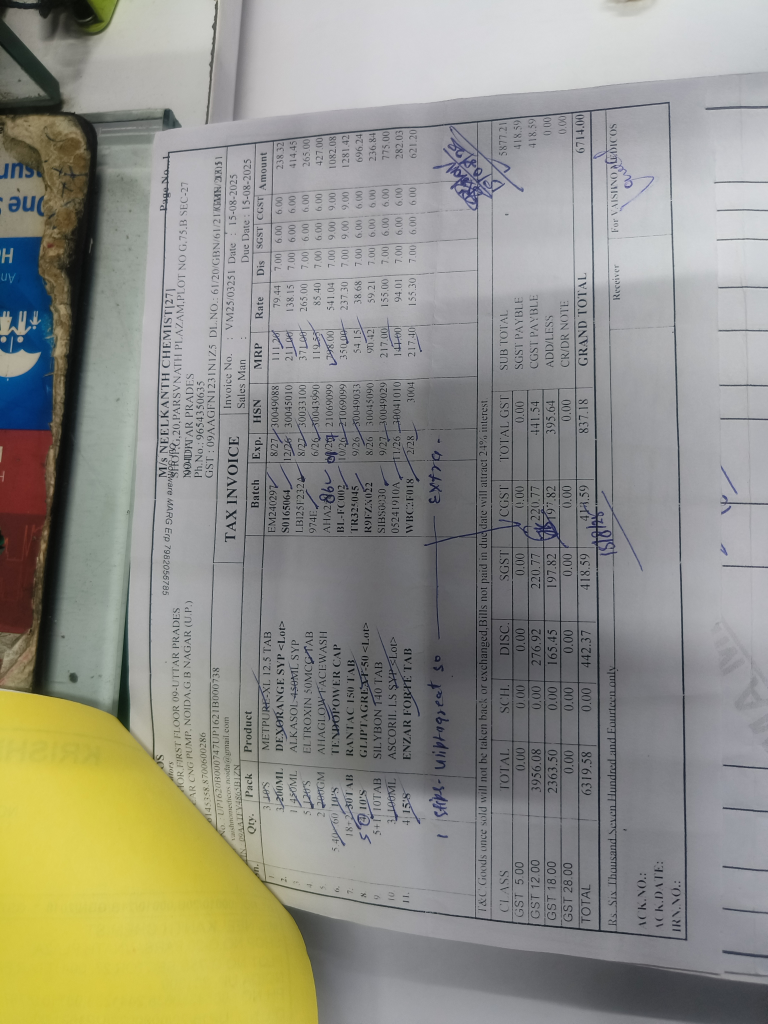 Page No...1
M/s NEELKANTH CHEMIST[27]
SHOP.G.20,PARSVNATH PLAZAM,PLOT NO G.75,B SEC-27
Ph.No.: 9654350635
GST : 09AAGFN1231N1Z5 DL.NO.: 61/20/GBN/61/21/GBN/2015
FIRST FLOOR 09-UTTAR PRADES
AR CNG PUMP, NOIDA,G B NAGAR (U.P.)
8700600286
TAX INVOICE
Invoice No. : VM25/03251 Date : 15-08-2025
Sales Man : Due Date : 15-08-2025
Qty. Pack Product Batch Exp. HSN MRP Rate Dis SGST CGST Amount
1. 3 10'S METPURE-XL 12.5 TAB EM240297 8/27 30049088 111.20 79.44 7.00 6.00 6.00 238.32
2. 3 200ML DEXORANGE SYP <Lot> S0165064 12/26 30045010 138.15 7.00 6.00 6.00 414.45
3. 1 450ML ALKASOL 450ML SYP LB125F232 8/27 30033100 371.00 265.00 7.00 6.00 6.00 265.00
4. 5 120'S ELTROXIN 50MCG TAB 974E 6/26 30043990 85.40 7.00 6.00 6.00 427.00
5. 2 AHAGLOW FACEWASH 21069099 541.04 7.00 9.00 9.00 1082.08
6. 10'S TENDOPOWER CAP BL-FC002 10/26 21069099 237.30 7.00 9.00 9.00 1281.42
7. 18+2 30TAB RANTAC 150 TAB TR324045 9/26 30049033 54.15 38.68 7.00 6.00 6.00 696.24
8. 10'S GLIPTAGREAT-50 <Lot> R9FZN022 8/26 30045090 90.42 59.21 7.00 6.00 6.00 236.84
9. 5+1 10TAB SILYBON 140 TAB SIBS0830 9/27 30049029 217.00 155.00 7.00 6.00 6.00 775.00
10. 3 100ML ASCORIL LS SYP <Lot> 05241910A 11/26 30041010 94.01 7.00 6.00 6.00 282.03
11. 4 15'S ENZAR FORTE TAB WBC2F018 2/28 3004 217.40 155.30 7.00 6.00 6.00 621.20
1 strips- uliptagreat 50 — Extra.
T&C Goods once sold will not be taken back or exchanged.Bills not paid in due date will attract 24% interest.
CLASS TOTAL SCH. DISC. SGST CGST TOTAL GST
GST 5.00 0.00 0.00 0.00 0.00 0.00 0.00
GST 12.00 3956.08 0.00 276.92 220.77 220.77 441.54
GST 18.00 2363.50 0.00 165.45 197.82 197.82 395.64
GST 28.00 0.00 0.00 0.00 0.00 0.00 0.00
TOTAL 6319.58 0.00 442.37 418.59 418.59 837.18
SUB TOTAL 5877.21
SGST PAYBLE 418.59
CGST PAYBLE 418.59
ADD/LESS 0.00
CR/DR NOTE 0.00
GRAND TOTAL 6714.00
Rs. Six Thousand Seven Hundred and Fourteen only
15/8/25
ACK.NO.:
ACK.DATE:
IRN.NO.:
Receiver
For VAISHNO MEDICOS